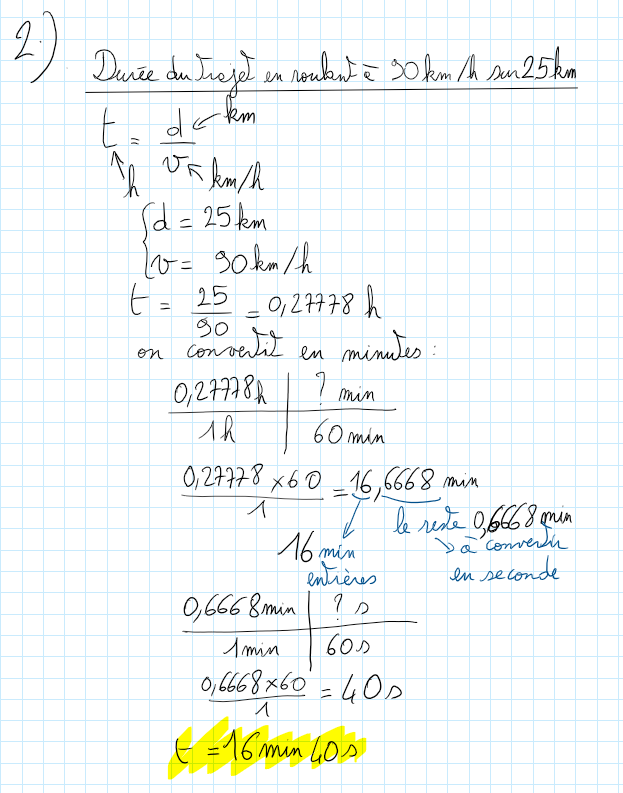 2.)
Durée du trajet en roulant à 90km/h sur 25km
t = d / v
km
h
km/h
d = 25km
v = 90km/h
t = 25 / 90 = 0,27778 h
on convertit en minutes :
0,27778h | ? min
1h | 60min
0,27778 × 60 / 1 = 16,6668 min
le reste 0,6668min
à convertir
en seconde
16 min
entières
0,6668min | ? s
1min | 60s
0,6668×60 / 1 = 40s
t = 16min 40s